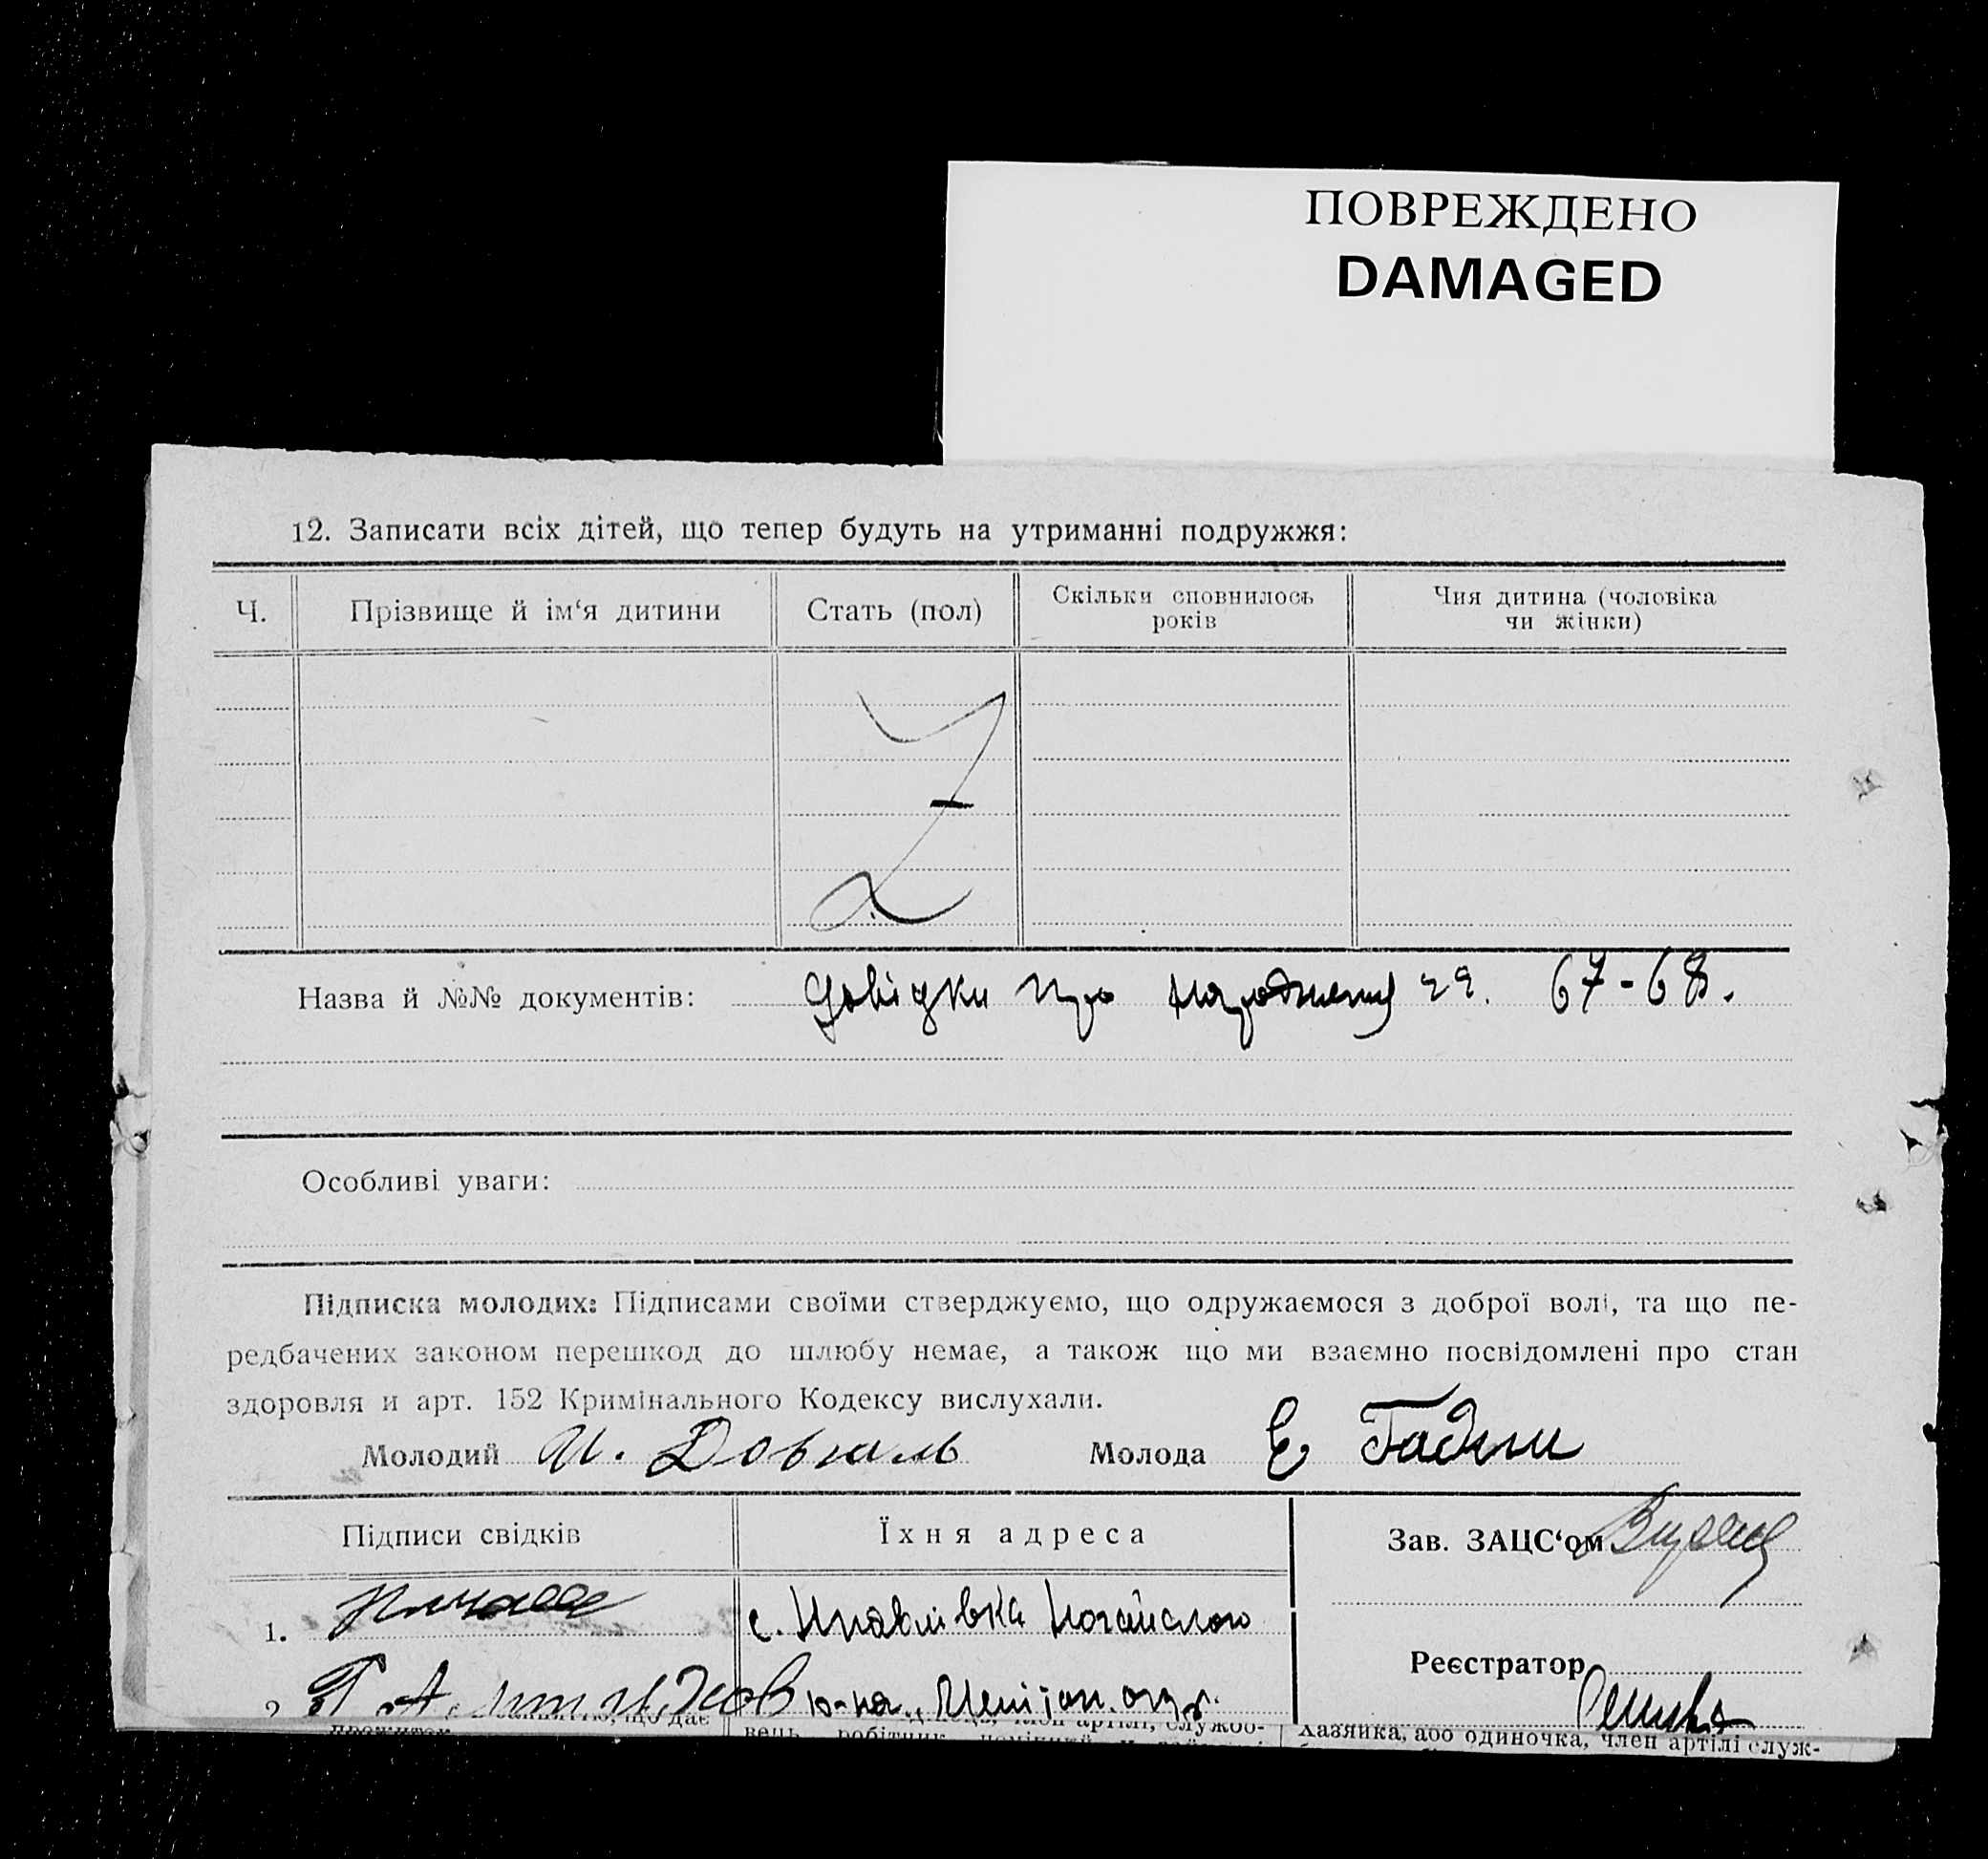 ПОВРЕЖДЕНО
DAMAGED
12. Записати всіх дітей, що тепер будуть на утриманні подружжя:
Ч.
Прізвище й ім‘я дитини
Стать (пол)
Скільки сповнилось
років
Чия дитина (чоловіка
чи жінки)
Назва й №№ документів: Довідки про народження 67-68.
Особливі уваги:
Підписка молодих: Підписами своїми стверджуємо, що одружаємося з доброї волі, та що пе-
редбачених законом перешкод до шлюбу немає, а також що ми взаємно посвідомлені про стан
здоровля и арт. 152 Кримінального Кодексу вислухали.
Молодий И. Довгаль Молода Є
Підписи свідків
Їхня адреса
Зав. ЗАЦС‘ом
1.
с. Ногайского
Реєстратор
2
р-на
що дає
прожиток
артілі, служоо-
вець робітник
Хазяйка, або одиночка, член артілі служ-